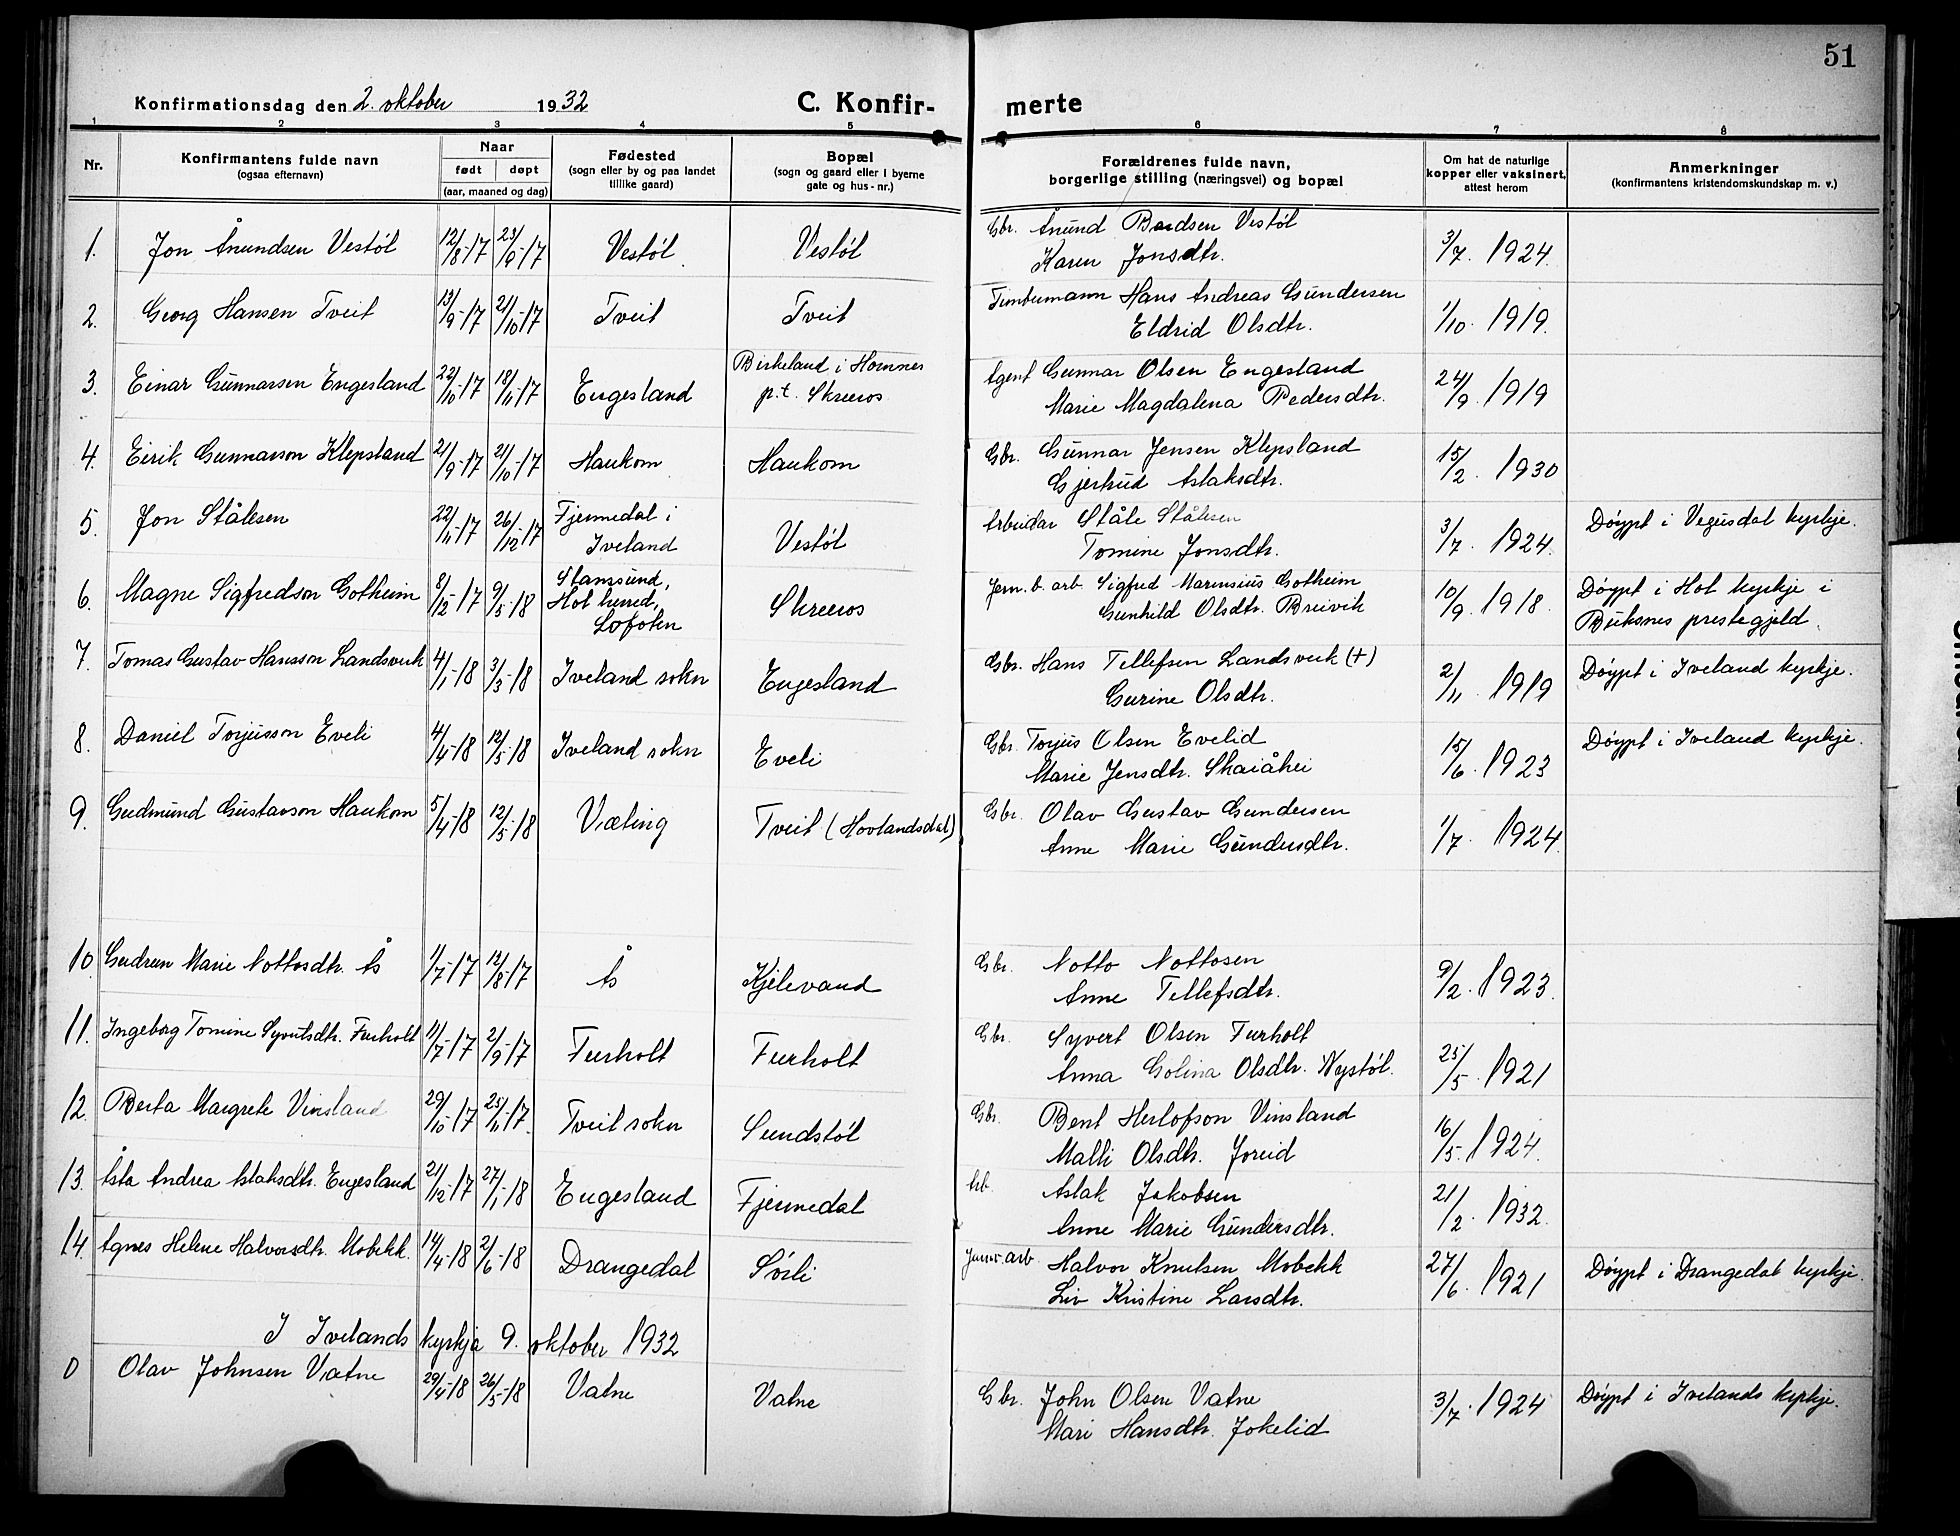 51
Konfirmationsdag den 2. oktober 1932
C. Konfir-
merte
1 2 3 4 5 6 7 8
Nr.
Konfirmantens fulde navn
(ogsaa efternavn)
Naar
født døpt
(aar, maaned og dag)
Fødested
(sogn eller by og paa landet
tillike gaard)
Bopæl
(sogn og gaard eller i byerne
gate og hus-nr.)
Forældrenes fulde navn,
borgerlige stilling (næringsvei) og bopæl
Om hat de naturlige
kopper eller vaksinert,
attest herom
Anmerkninger
(konfirmantens kristendomskundskap m. v.)
1. Jon Ånundsen Vestøl 12/8-17 23/9-17 Vestøl Vestøl Gbr. Ånund Bordsen Vestøl
Karen Jonsdtr. 3/7. 1924.
2. Georg Hansen Tveit 13/9-17 21/10-17 Tveit Tveit Timbermann Hans Andreas Gundersen
Eldrid Olsdtr. 1/10. 1919.
3. Einar Gunnarsen Engesland 22/10-17 18/11-17 Engesland Birkeland i Homnes
p.t. Skreros Agent Gunnar Olsen Engesland
Marie Magdalena Pedersdtr. 24/9. 1919
4. Eirik Gunnarson Klepsland 21/9-17 21/10-17 Haukom Haukom Gbr. Gunnar Jensen Klepsland
Gjertrud Aslaksdtr. 15/2. 1930
5. Jon Stålesen 22/11-17 26/12-17 Fjermedal i
Iveland Vestøl Arbeidar Ståle Stålesen
Tomine Jonsdtr. 3/7. 1924. Døypt i Vegusdal kyrkje.
6. Magne Sigfredson Gotheim 8/12-17 9/5-18 Stamsund,
Hol herred,
Lofoten Skreros Jern.b. arb. Sigfred Marensius Gotheim
Gunhild Olsdtr. Breivik 10/9. 1918. Døypt i Hol kyrkje i
Buksnes prestegjeld.
7. Tomas Gustav Hansson Landsverk 4/1-18 3/3-18 Iveland sokn Engesland Gbr. Hans Tellefsen Landsverk (+)
Gurine Olsdtr. 2/11. 1919 Døypt i Iveland kyrkje.
8. Daniel Torjusson Eveli 4/4-18 12/5-18 Iveland sokn Eveli Gbr. Torjus Olsen Evelid
Marie Jensdtr. Skaiåhei 15/6. 1923 Døypt i Iveland kyrkje.
9. Gudmund Gustavson Haukom 5/4-18 12/5-18 Væting Tveit (Hovlandsdal) Gbr. Olav Gustav Gundersen
Anne Marie Gundersdtr. 1/7. 1924.
10. Gudrun Marie Nottosdtr. Ås 1/7-17 12/8-17 Ås Kjelevand Gbr. Notto Nottosen
Anne Tellefsdtr. 9/2. 1923.
11. Ingeborg Tomine Syvertsdtr. Furholt 11/7-17 2/9-17 Furholt Furholt Gbr. Syvert Olsen Furholt
Anna Golina Olsdtr. Nystøl. 25/5. 1921
12. Berta Margrete Vinsland 29/10-17 25/11-17. Tveit sokn Sundstøl Gbr. Bent Herlofson Vinsland
Malli Olsdtr. Joreid 16/5. 1924.
13. Åsta Andrea Aslaksdtr. Engesland 21/12-17 27/1-18 Engesland Fjermedal Arb. Aslak Jakobsen
Anne Marie Gundersdtr. 21/2. 1932.
14. Agnes Helene Halvorsdtr. Mobekk. 14/4-18 2/6-18 Drangedal Sørli Jernv. arb Halvor Knutsen Mobekk
Liv Kristine Larsdtr. 27/6. 1921 Døypt i Drangedal kyrkje.
I Ivelands kyrkja 9. oktober 1932
0 Olav Johnsen Vatne 29/4-18 26/5-18 Vatne Vatne Gbr. John Olsen Vatne
Mari Hansdtr. Jokelid 3/7. 1924 Døypt i Ivelands kyrkje.